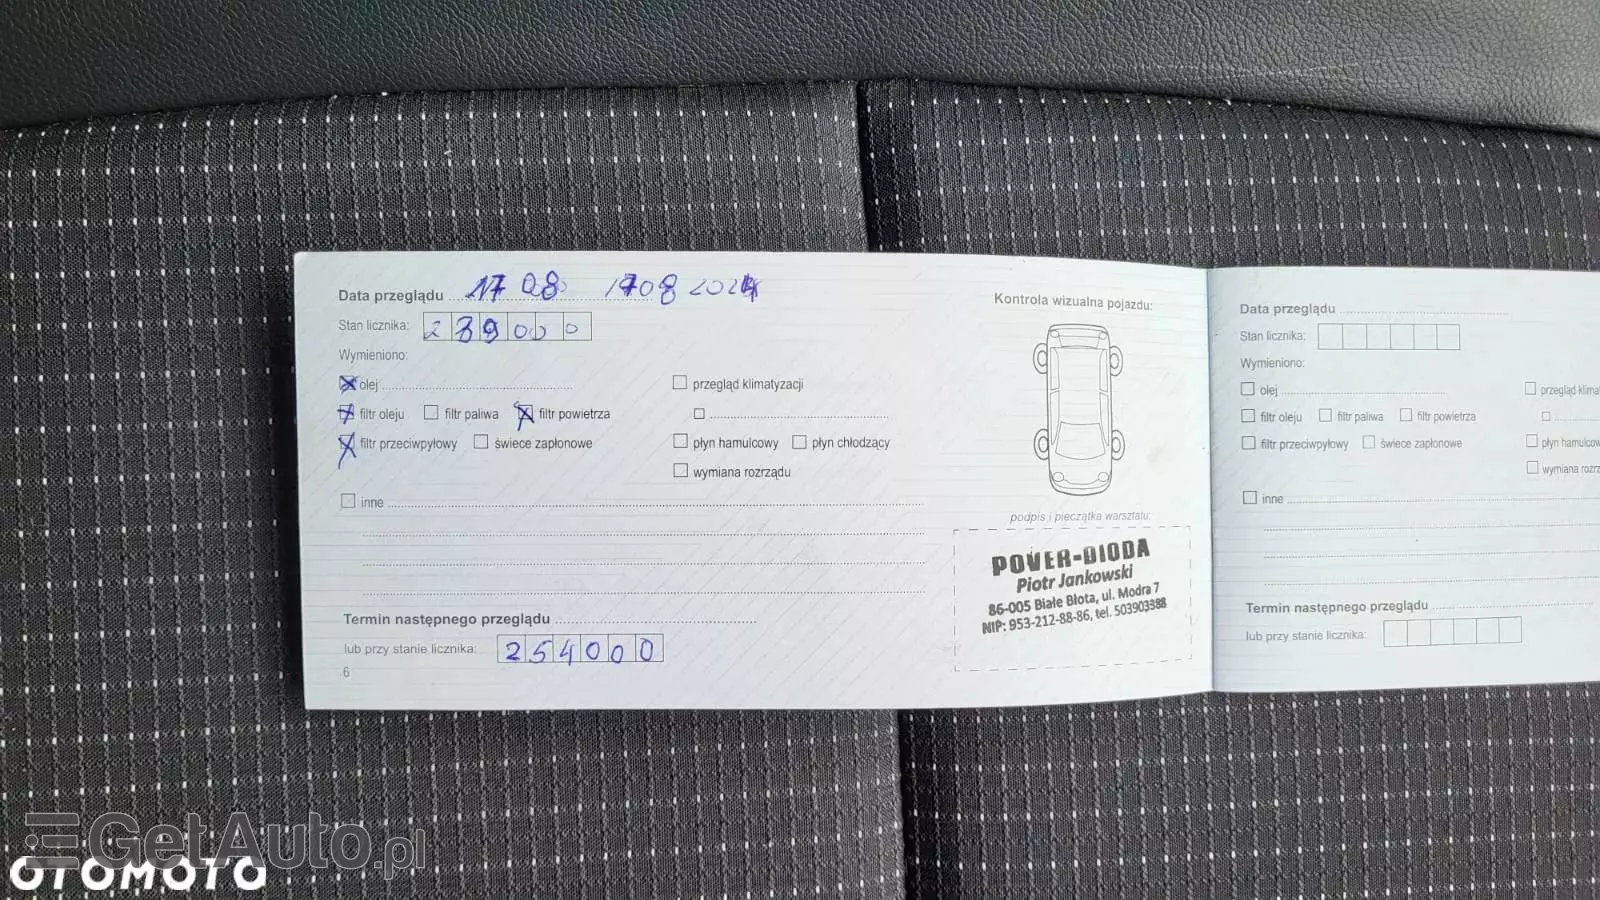 Data przeglądu 17 08 1708 2024
Stan licznika: 239000
Wymieniono:
olej
filtr oleju filtr paliwa filtr powietrza
filtr przeciwpyłowy świece zapłonowe
przegląd klimatyzacji
płyn hamulcowy płyn chłodzący
wymiana rozrządu
inne
Termin następnego przeglądu
lub przy stanie licznika: 254000
6
Kontrola wizualna pojazdu:
podpis i pieczątka warsztatu:
POWER-DIODA
Piotr Jankowski
86-005 Białe Błota, ul. Modra 7
NIP: 953-212-88-86, tel. 503903388
Data przeglądu
Stan licznika:
Wymieniono:
olej
filtr oleju filtr paliwa filtr powietrza
filtr przeciwpyłowy świece zapłonowe
przegląd klima
płyn hamulcow
wymiana rozrz
inne
Termin następnego przeglądu
lub przy stanie licznika:
GetAuto.pl
OTOMOTO